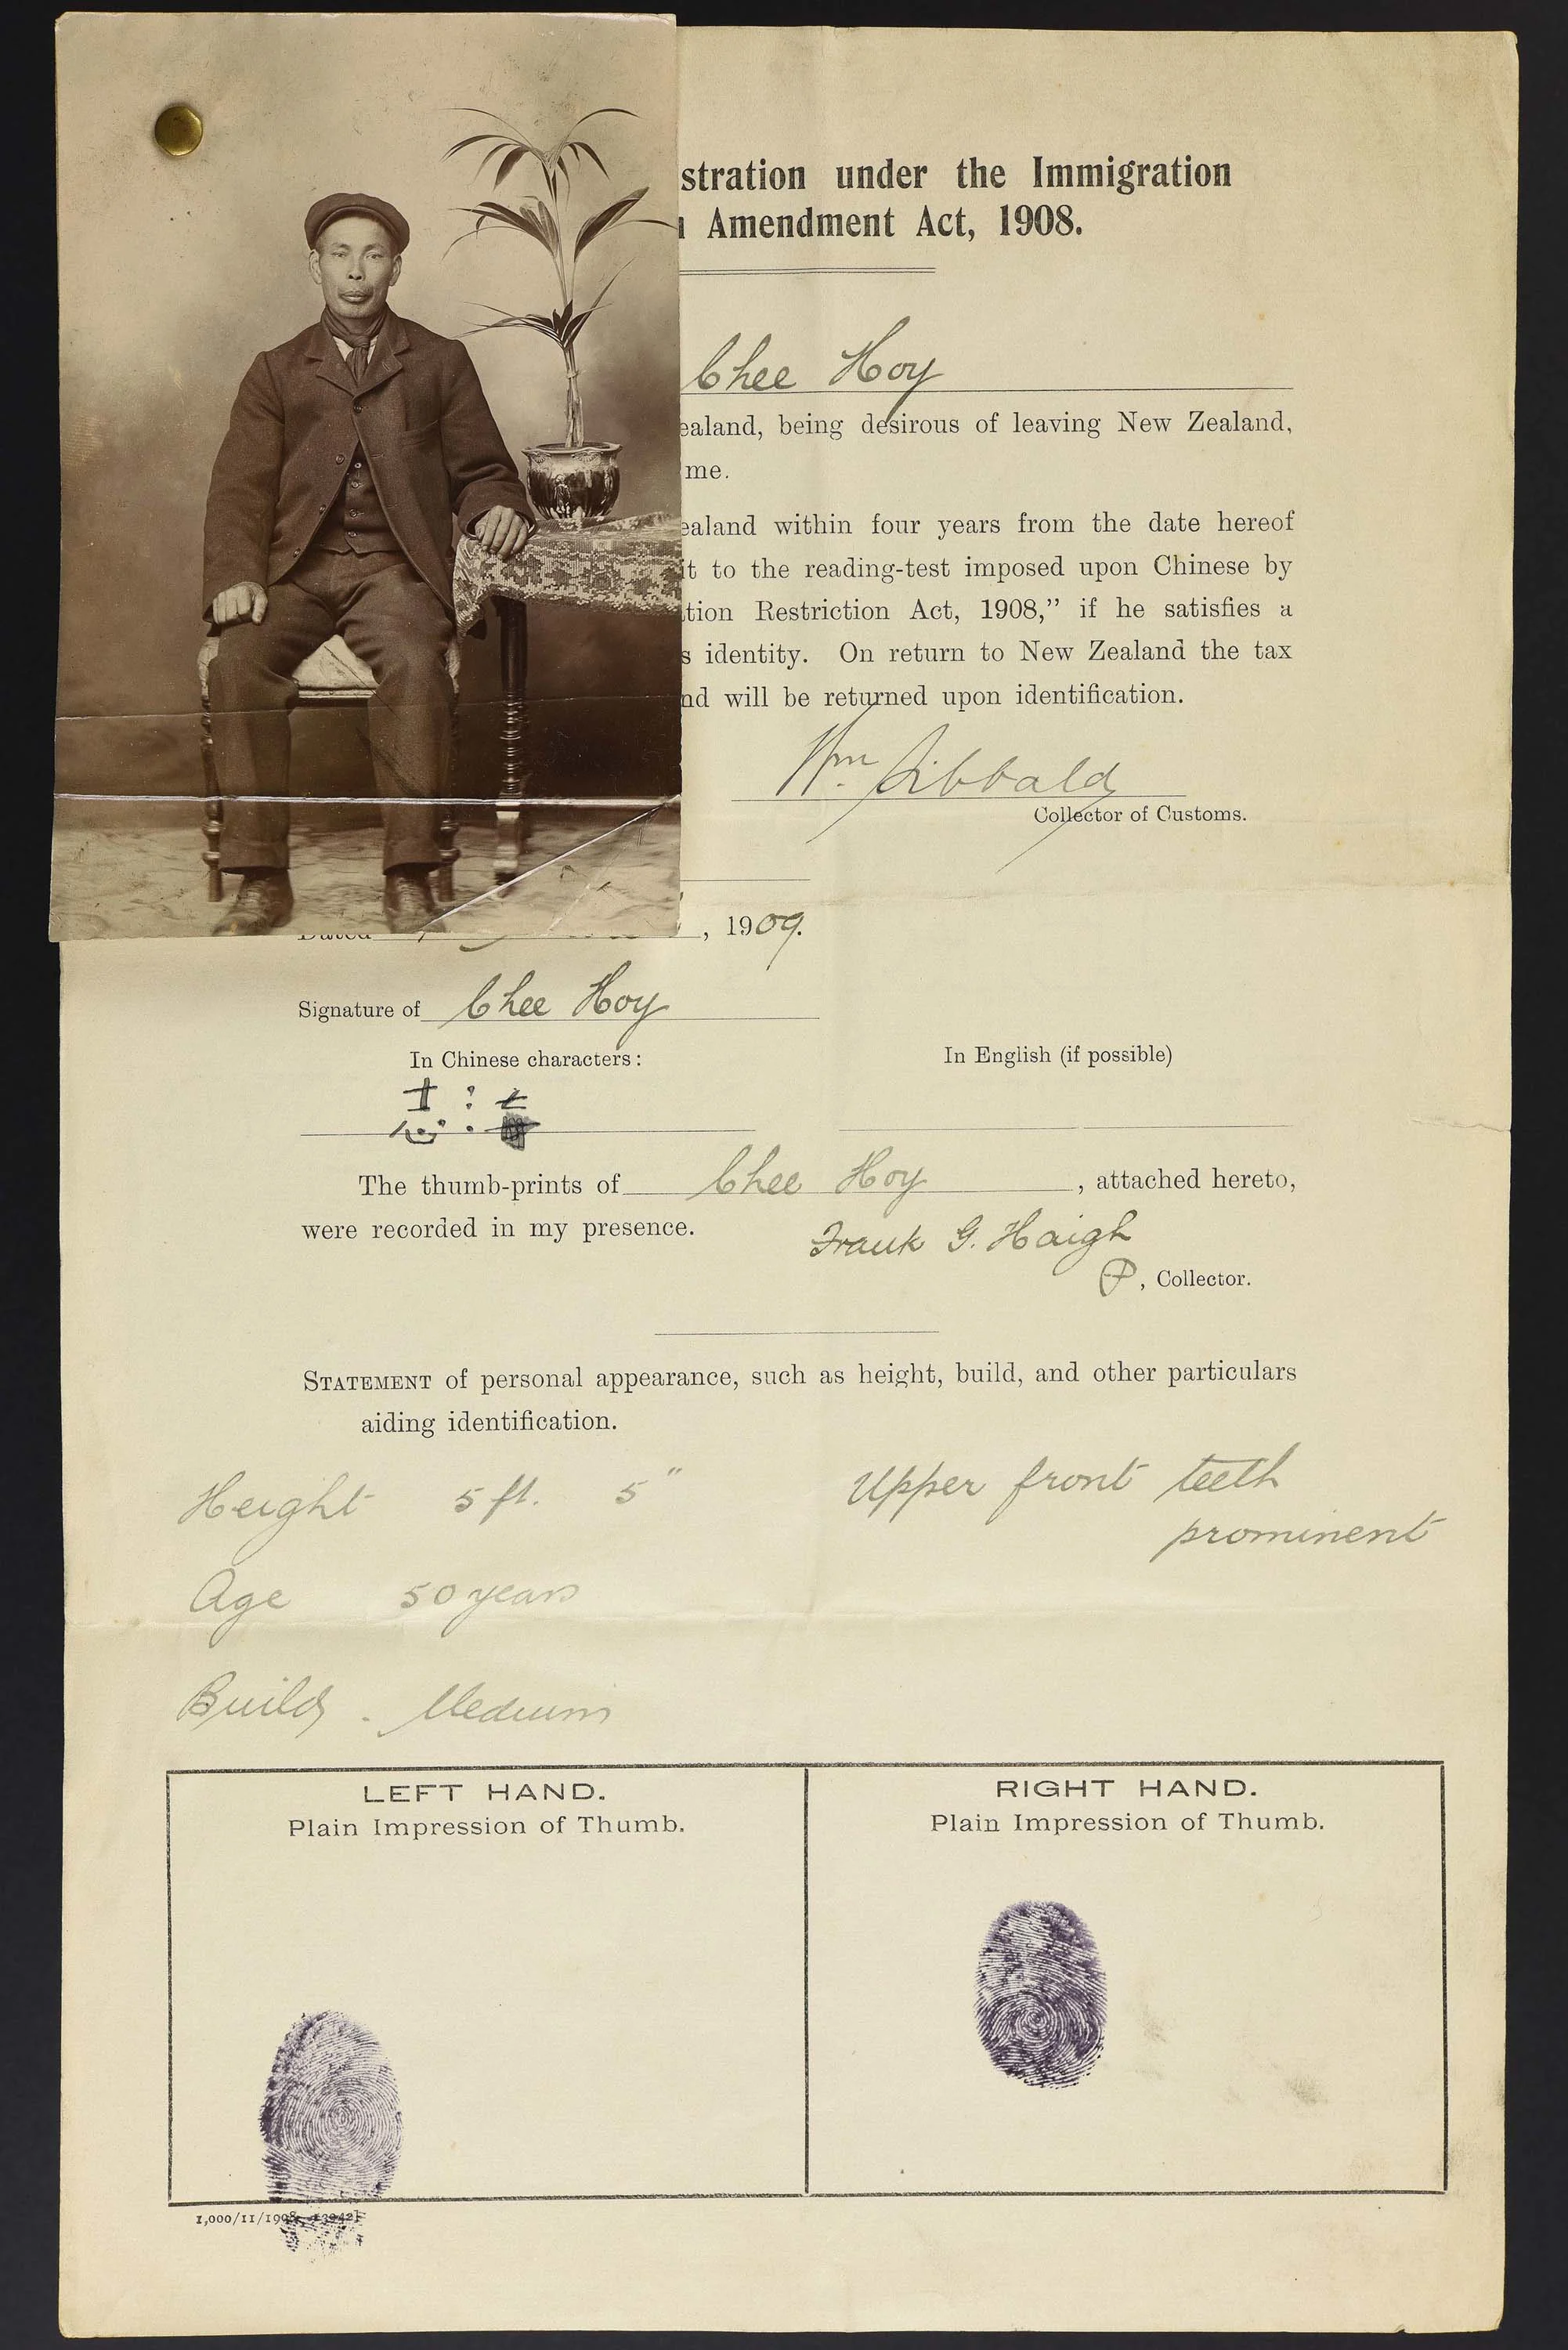 stration under the Immigration
Amendment Act, 1908.
Chee Hoy
ealand, being desirous of leaving New Zealand,
me.
ealand within four years from the date hereof
it to the reading-test imposed upon Chinese by
tion Restriction Act, 1908,” if he satisfies a
s identity. On return to New Zealand the tax
nd will be returned upon identification.
Wm. Sibbald
Collector of Customs.
Dated , 1909.
Signature of Chee Hoy
In Chinese characters: In English (if possible)
The thumb-prints of Chee Hoy, attached hereto,
were recorded in my presence.
Frank G. Haigh
, Collector.
STATEMENT of personal appearance, such as height, build, and other particulars
aiding identification.
Height 5 ft. 5" Upper front teeth
prominent
Age 50 years
Build - Medium
LEFT HAND. RIGHT HAND.
Plain Impression of Thumb. Plain Impression of Thumb.
1,000/11/1908—13942]